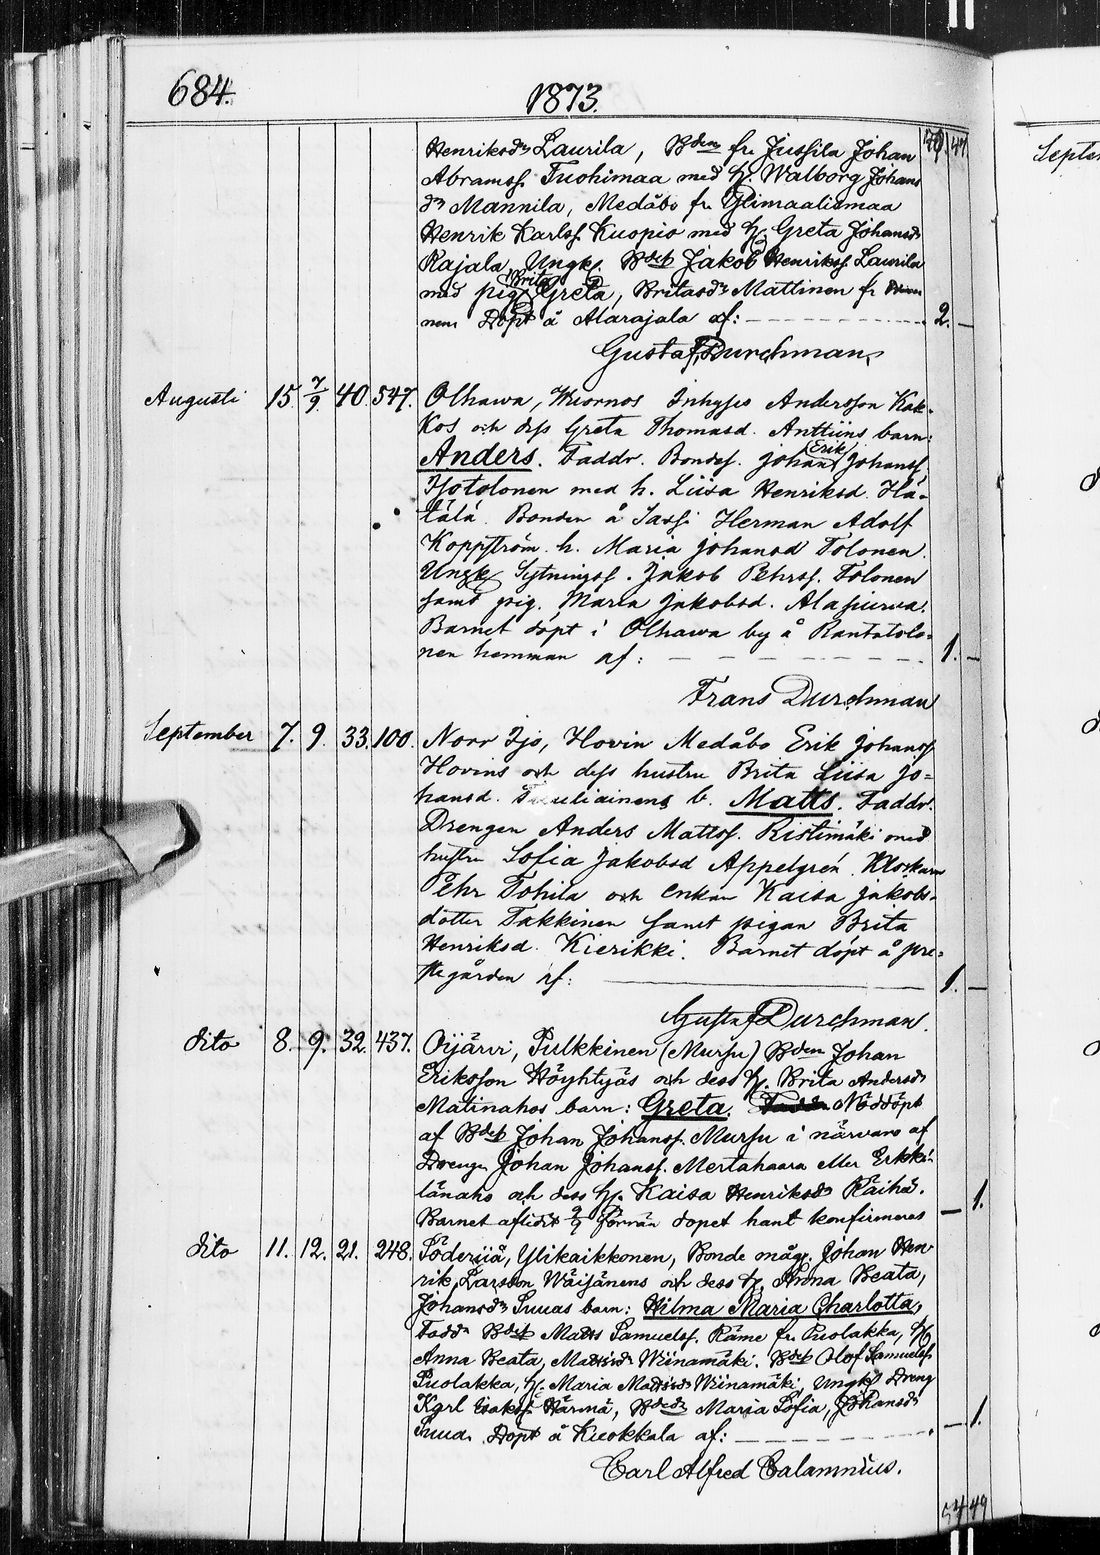 684.
1873.
Septem
Henriksdr Laurila, Bden fr. Jussila Johan 70. 47.
Abramss. Tuohimaa med h. Walborg Johans
dr Mannila, Medåbo fr. Ylimaaliamaa
Henrik Karlss. Kuopio med h. Greta Johansdr
Rajala, Ungk. Bdes Jakob Henrikss. Laurila
med pig. Brita Greta, Britasdr Mattinen fr
nen Döpt å Alarajala af: 2. —
Gustaf Durchman,
Augusti 15. 7/9. 40. 547. Olhawa, Inhyses Andersson Kak-
kos och dess Greta Thomasd. Anttiins barn:
Anders. Faddr. Bondes. Johan Erik Johanss.
Isotolonen med h. Liisa Henriksd. Hä-
tälä. Bonden å Sassi Herman Adolf
Koppström h. Maria Johansd Tolonen.
Ungk Sytnings. Jakob Pehrss. Tolonen
samt pig. Maria Jakobsd. Alapurva.
Barnet döpt i Olhawa by å Rantatolo-
nen hemman af: 1. —
Frans Durchman
September 7. 9. 33. 100. Norr Ijo, Hovin Medåbo Erik Johanss
Hovins och dess hustru Brita Liisa Jo-
hansd. b. Matts. Faddr.
Drengen Anders Mattss. Ristimäki med
hustru Sofia Jakobsd Appelgrén. Klockarn
Pehr Tohila och enkan Kaisa Jakobs-
dotter Takkinen samt pigan Brita
Henriksd. Kierikki. Barnet döpt å pre-
stegården af: 1. —
Gustaf Durchman.
dito 8. 9. 32. 437. Oijärvi, Pulkkinen (Mursu) Bden Johan
Eriksson Köyhtyäs och dess h. Brita Andersdr
Matinahos barn: Greta. Faddr Nöddöpt
af Bdes Johan Johanss. Mursu i närvaro af
Dreng. Johan Johanss. Mertahaara eller Erkki-
länaho och dess h. Kaisa Henriksdr Räihä.
Barnet aflidit 9/9 förrän dopet hant konfirmeras — 1.
dito 11. 12. 21. 248. Söderiiå, Ylikaikkonen, Bonde måg. Johan Hen-
rik Larsson Wäijänens och dess h. Anna Beata,
Johansdr Suuas barn: Hilma Maria Charlotta,
Faddr Bdes Matts Samuelss. Räme fr. Puolakka, h.
Anna Beata, Mattsdr Wiinamäki. Bdes Olof Samuelss
Puolakka, h. Maria Mattsdr Wiinamäki, Ungk Dreng
Karl Isakss. Härmä, Bdes Maria Sofia, Johansdr
Suua. Döpt å Kuokkala af: — 1.
Carl Alfred Calamnius.
54 49